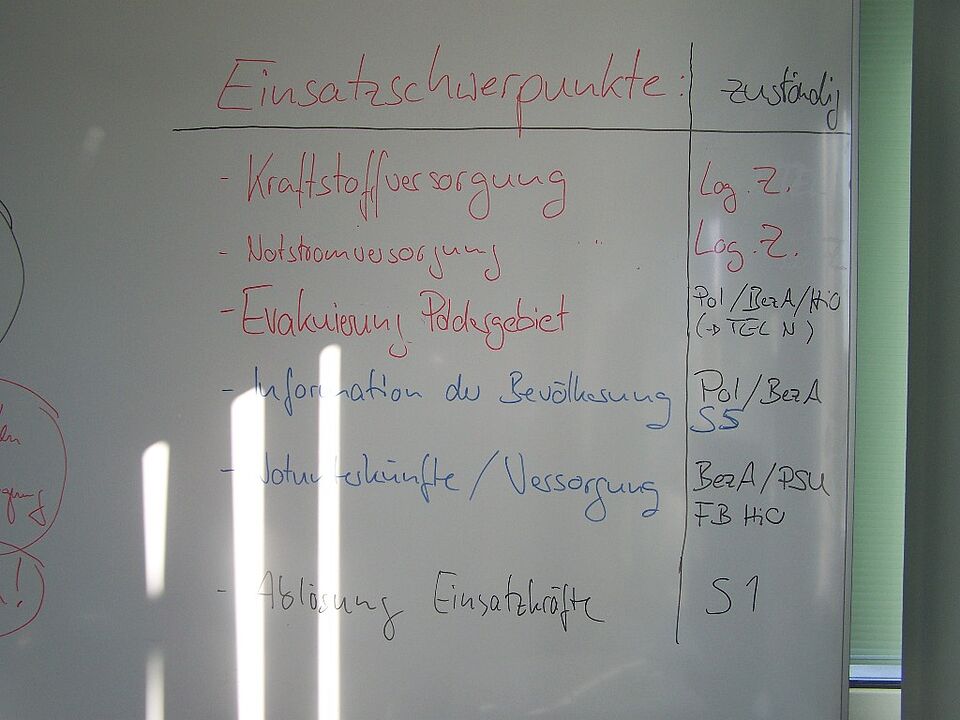 Einsatzschwerpunkte: zuständig
- Kraftstoffversorgung Log. Z.
- Notstromversorgung Log. Z.
- Evakuierung Poldergebiet Pol/BezA/HiO
(→ TEL N)
- Information der Bevölkerung Pol/BezA
S5
- Notunterkünfte/Versorgung BezA/PSU
FB HiO
- Ablösung Einsatzkräfte S1